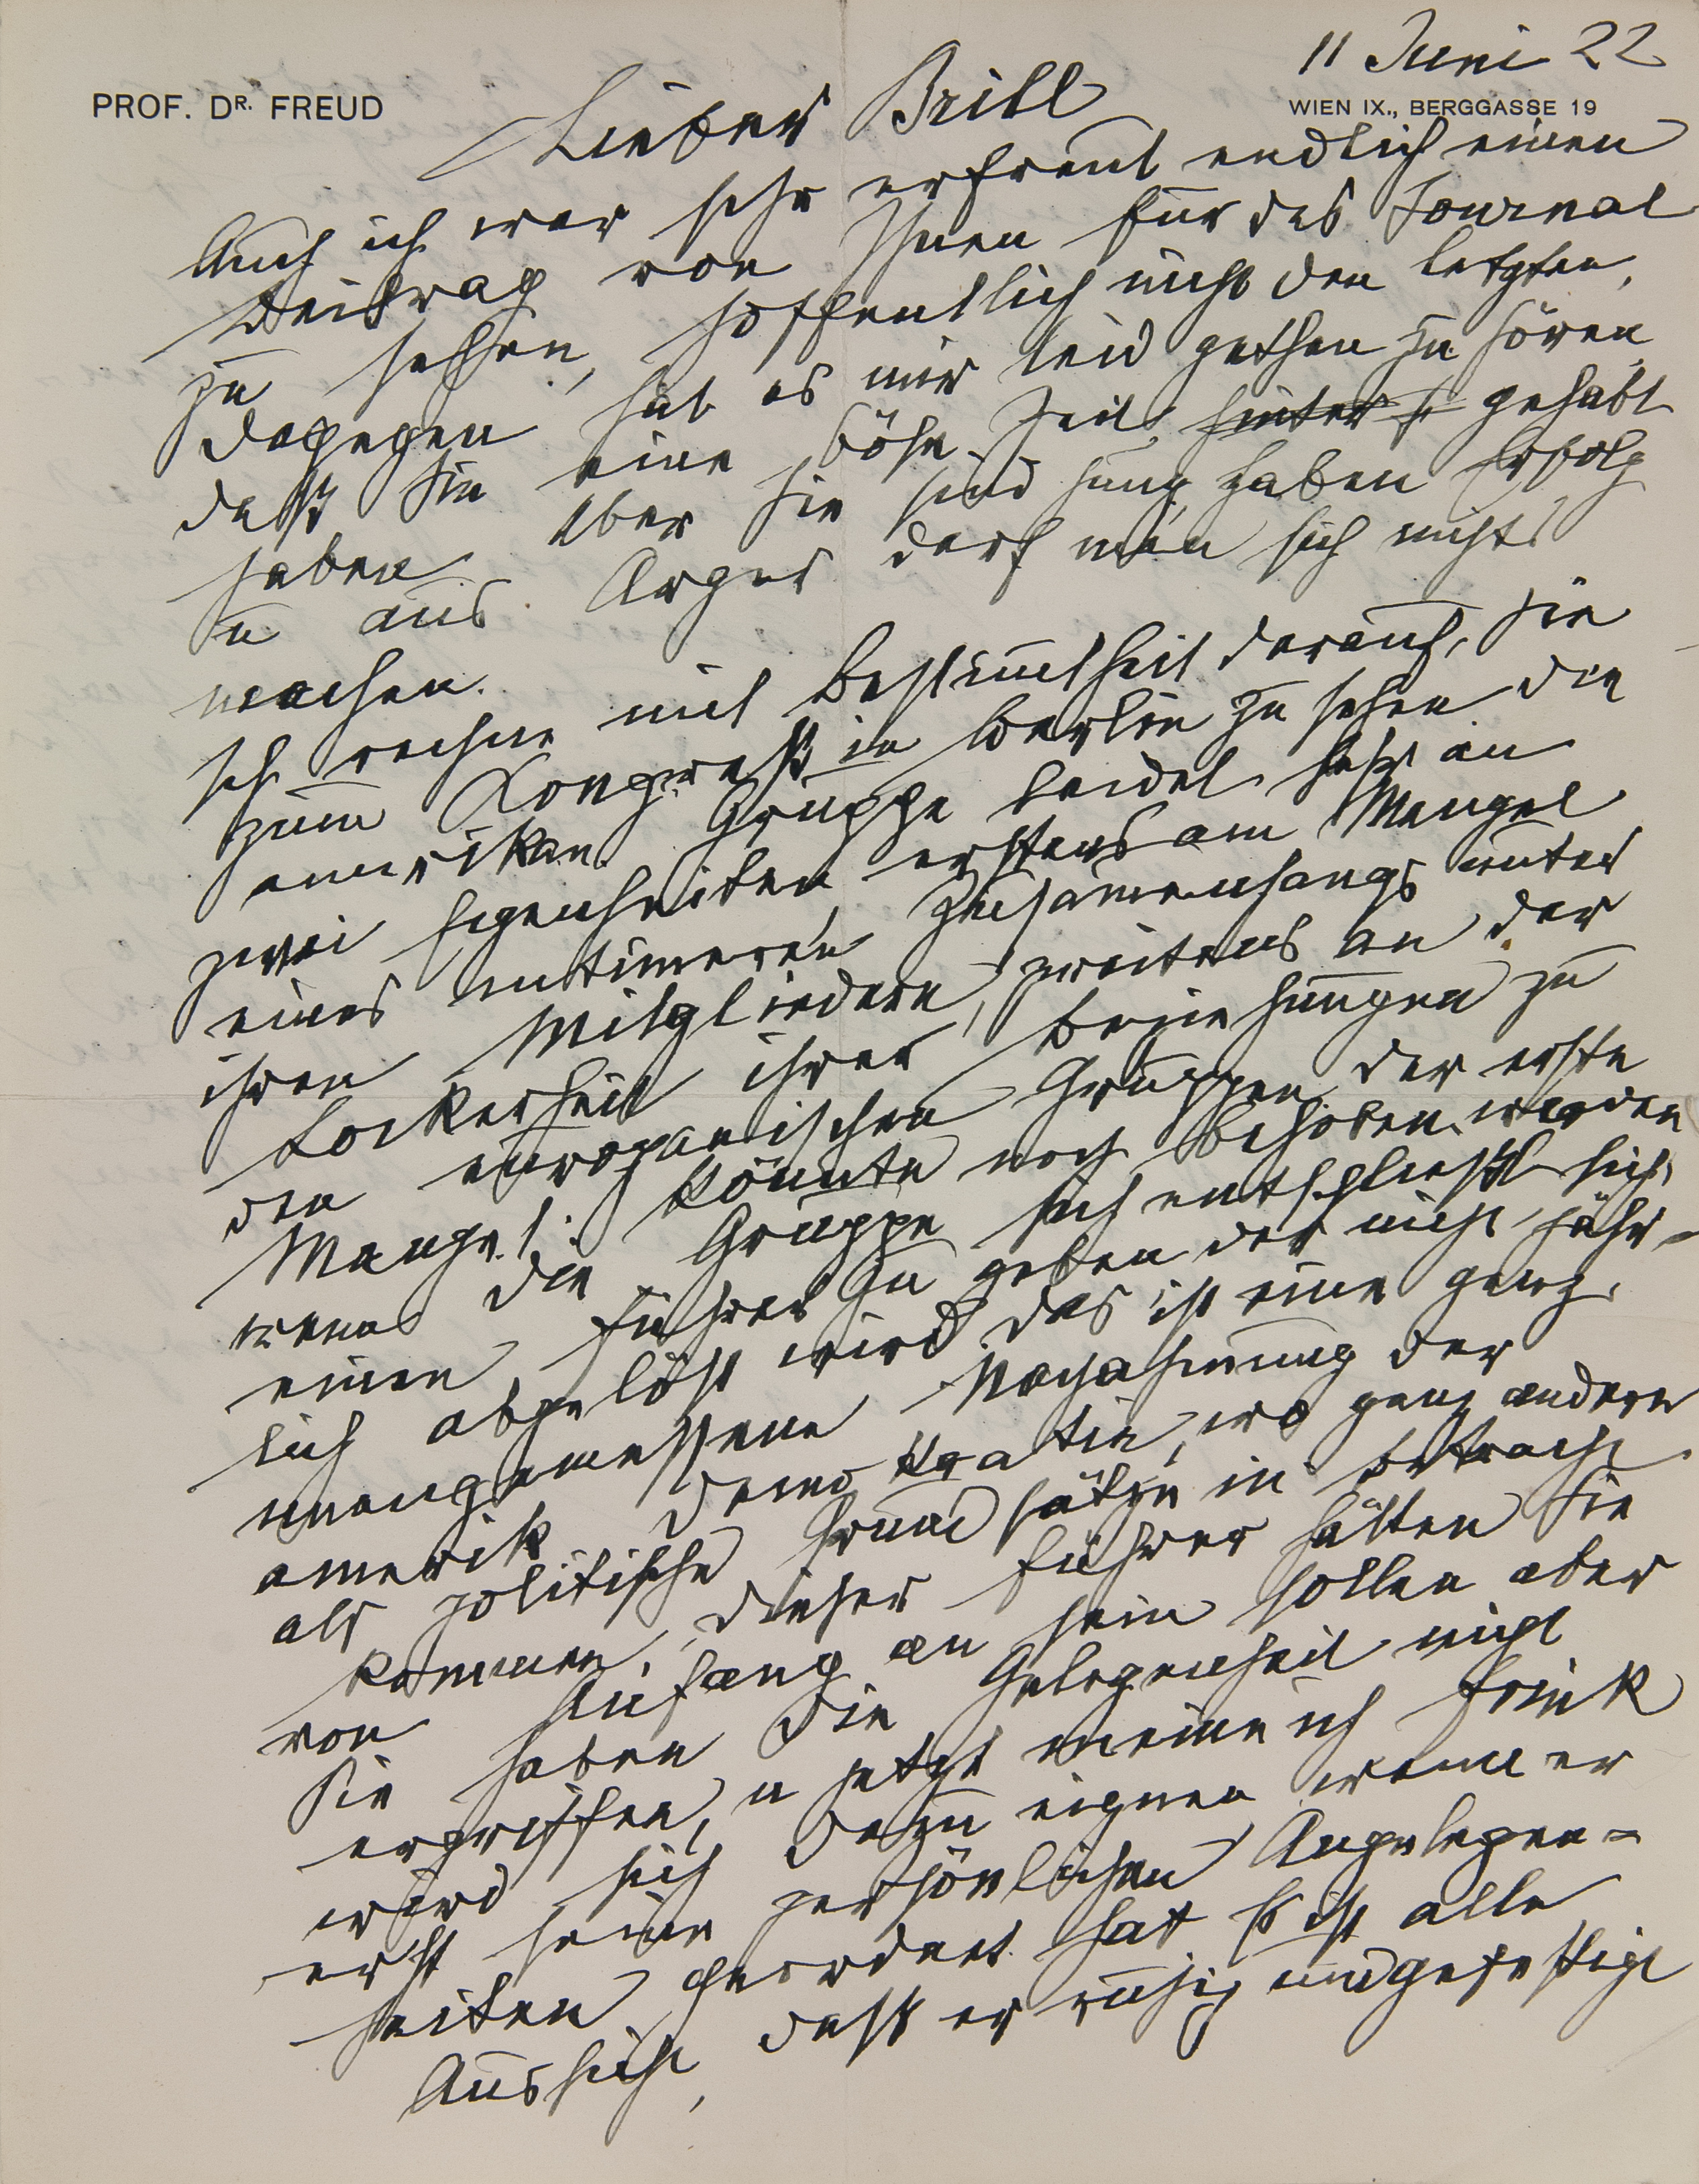 11 Juni 22
PROF. DR. FREUD
WIEN IX., BERGGASSE 19
Lieber Brill
Auch ich war sehr erfreut endlich einen
Beitrag von Ihnen für das Journal
zu sehen, hoffentlich nicht den letzten,
dagegen hat es mir leid gethan zu hören
daß Sie eine böse Zeit hinter si gehabt
haben. Aber Sie sind jung, haben Erfolg
u aus Arges darf man sich nichts
machen.
Ich rechne mit Bestimmtheit darauf, Sie
zum Kongreß in Berlin zu sehen. Die
amerikan. Gruppe leidet sehr an
zwei Eigenheiten, erstens am Mangel
eines intimeren Zusammenhangs unter
ihren Mitgliedern, zweitens an der
Lockerheit ihrer Beziehungen zu
den europaeischen Gruppen. Der erste
Mangel könnte noch behoben werden
wenn die Gruppe sich entschließt sich
einen Führer zu geben der nicht jähr-
lich abgelöst wird. Das ist eine ganz
unangemessene Nachahmung der
amerik Demokratie, wo ganz andere
als politische Grundsätze in Betracht
kommen. Dieser Führer hätten Sie
von Anfang an sein sollen aber
Sie haben die Gelegenheit nicht
ergriffen, u jetzt meine ich Frink
wird sich dazu eignen wenn er
erst seine persönlichen Angelegen-
heiten geordnet hat. Es ist alle
Aussicht, daß er ruhig und gefestigt